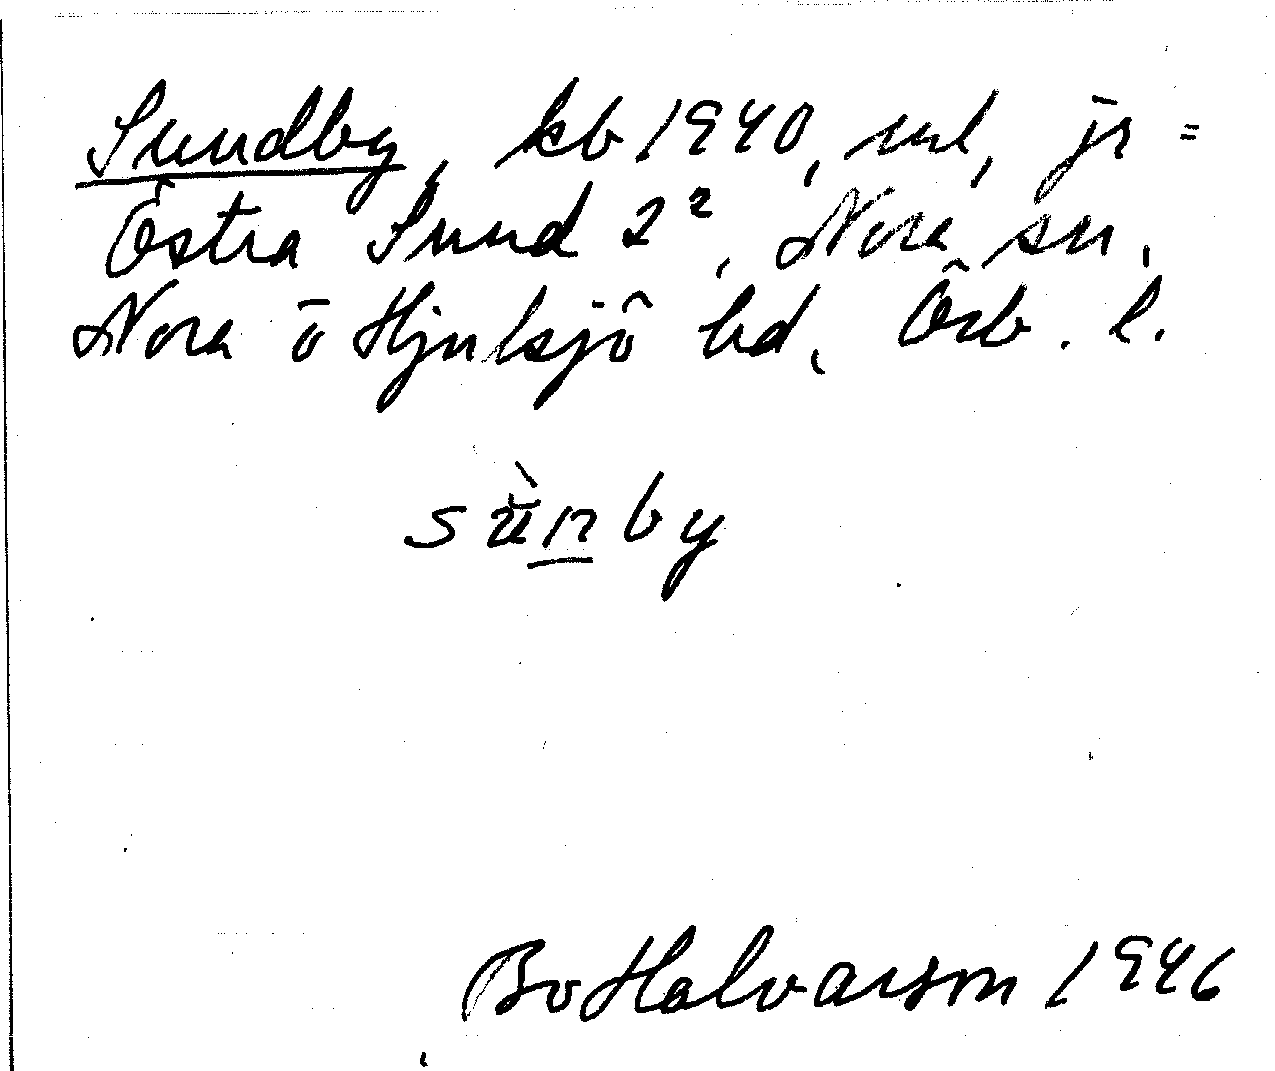 Sundby, kb 1940, ul, jr =
Östra Sund 2², Nora sn,
Nora o Hjulsjö hd, Örb. l.
sùnby
Bo Halvarson 1946